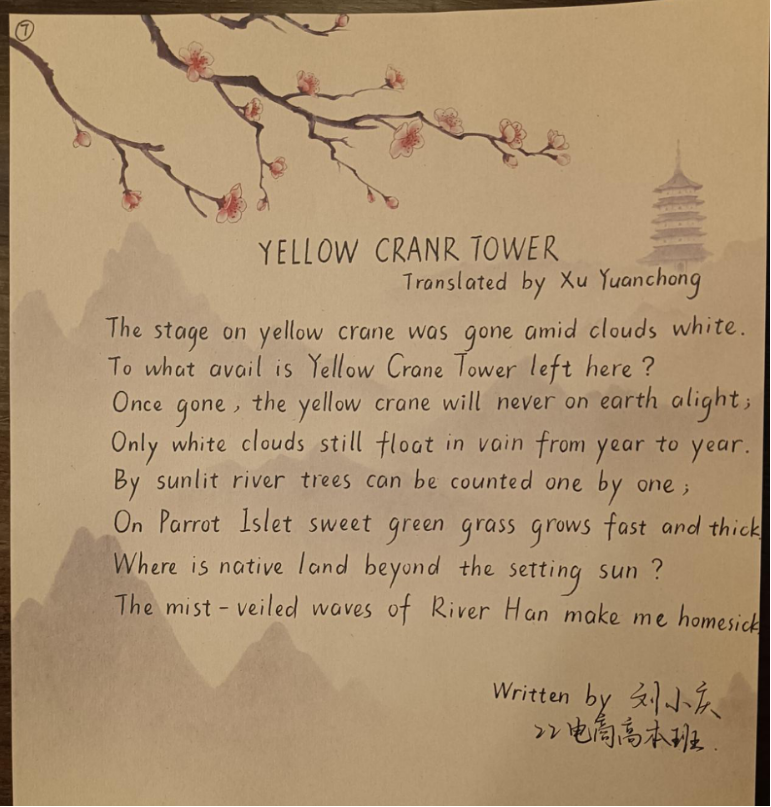 ⑦
YELLOW CRANR TOWER
Translated by Xu Yuanchong
The stage on yellow crane was gone amid clouds white.
To what avail is Yellow Crane Tower left here?
Once gone, the yellow crane will never on earth alight;
Only white clouds still float in vain from year to year.
By sunlit river trees can be counted one by one;
On Parrot Islet sweet green grass grows fast and thick.
Where is native land beyond the setting sun?
The mist-veiled waves of River Han make me homesick.
Written by 刘小庆
22电商高本班.